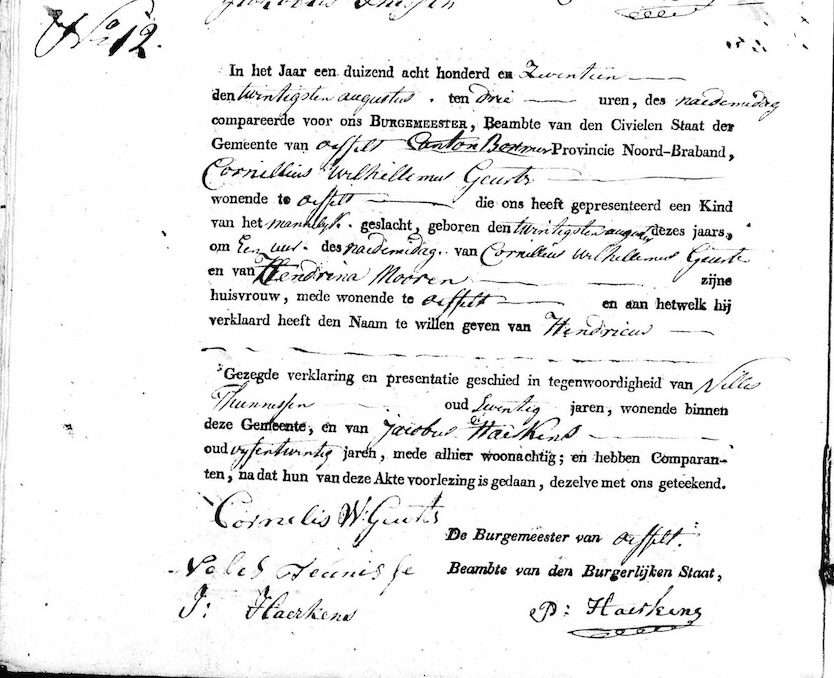 No 12.
In het Jaar een duizend acht honderd en Zeventien
den twintigsten augustus . ten drie uren, des naedemidag
compareerde voor ons BURGEMEESTER, Beambte van den Civielen Staat der
Gemeente van oeffelt Canton Boxmeer Provincie Noord-Braband,
Cornellius Wilhellemus Geurts
wonende te oeffelt die ons heeft gepresenteerd een Kind
van het mannelyk . geslacht, geboren den twintigsten augusty dezes jaars,
om Een uur . des naedemidag . van Cornellius Wilhellemus Geurts
en van Hendrina Mooren zijne
huisvrouw, mede wonende te oeffelt en aan hetwelk hij
verklaard heeft den Naam te willen geven van Hendricus
Gezegde verklaring en presentatie geschied in tegenwoordigheid van Nelles
Thunnissen oud Zwentig jaren, wonende binnen
deze Gemeente, en van Jacobus Haerkens
oud vyfentwintig jaren, mede alhier woonachtig; en hebben Comparan-
ten, na dat hun van deze Akte voorlezing is gedaan, dezelve met ons geteekend.
Cornelis W: Geurts
De Burgemeester van oeffelt.
Neles Teunisse Beambte van den Burgerlijken Staat,
J: Haerkens P: Haerkens